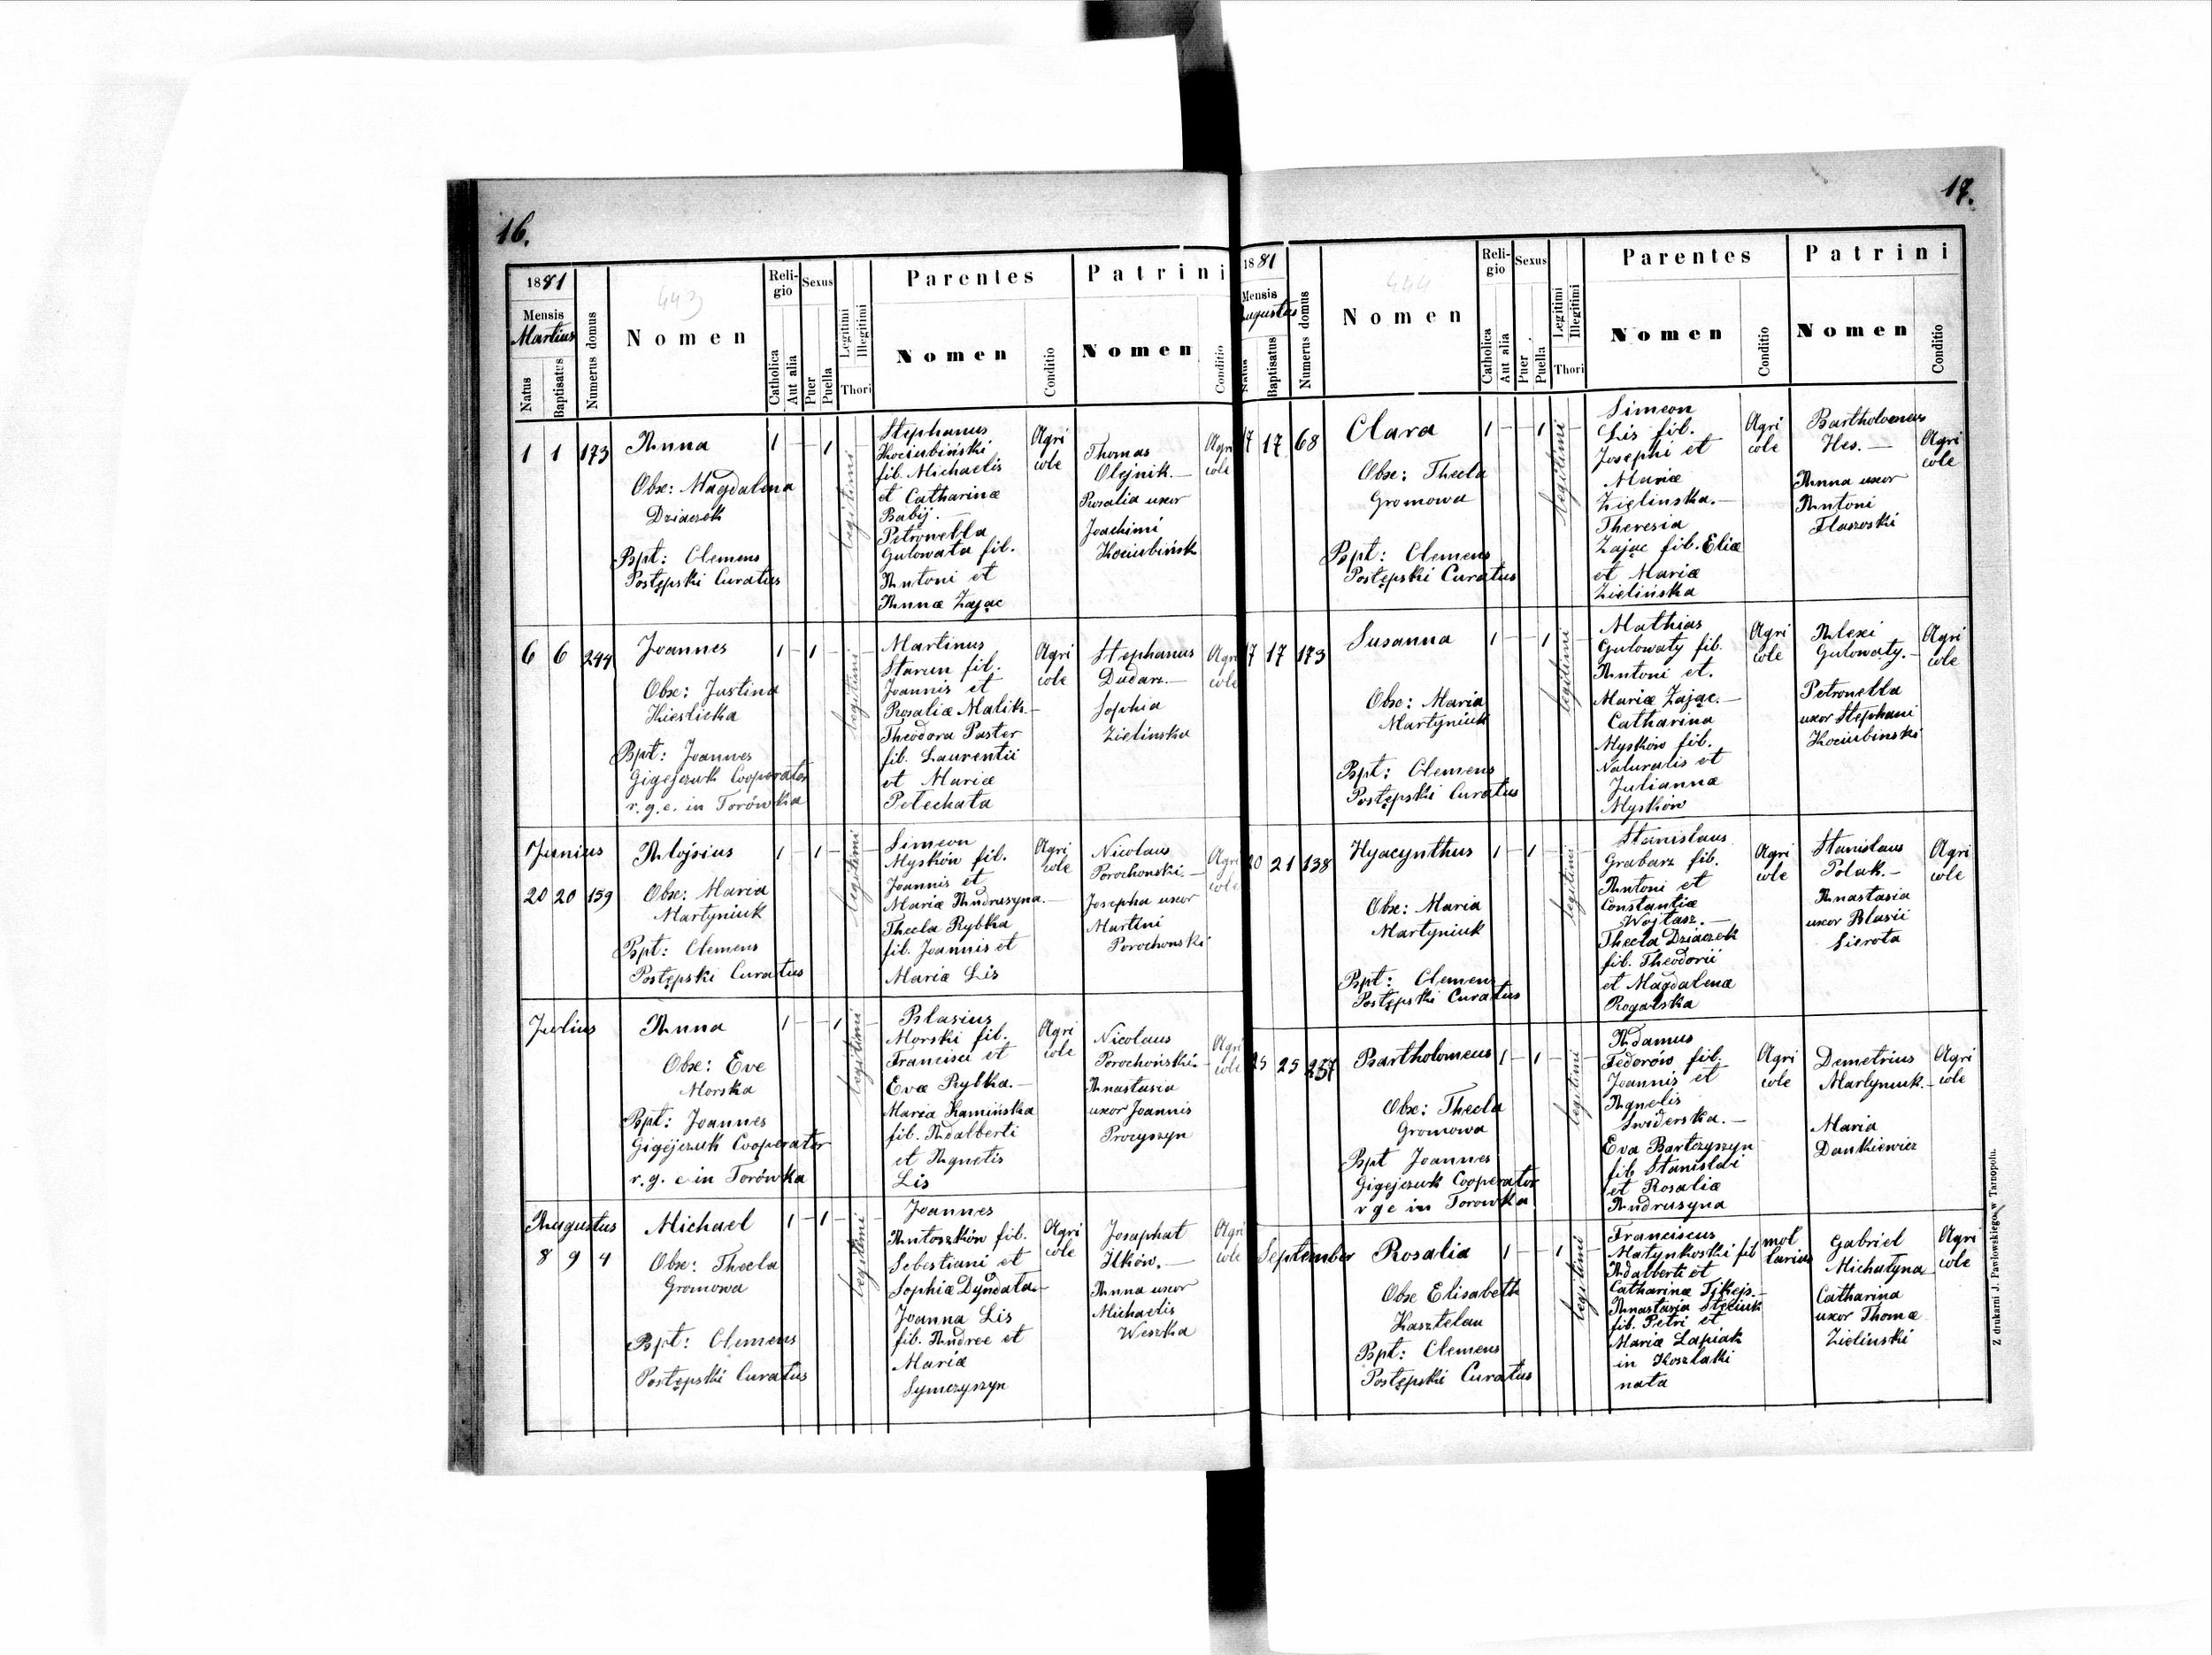 16.
1881
Mensis
Martius
Natus
Baptisatus
Numerus domus
443
Nomen
Religio
Catholica
Aut alia
Sexus
Puer
Puella
Legitimi
Illegitimi
Thori
Parentes
Nomen
Conditio
Patrini
Nomen
Conditio
1 1 173
Anna
Obse: Magdalena
Dziaczek
Bpt: Clemens
Postępski Curatus
1 - - 1 -
legitimi
Stephanus
Kociubiński
fil. Michaelis
et Catharinæ
Babij. -
Petronella
Gulowata fil.
Antoni et
Annæ Zając
Agri
colæ
Thomas
Olejnik. -
Rosalia uxor
Joachimi
Kociubińsk
Agri
colæ
6 6 244
Joannes
Obse: Justina
Kieslicka
Bpt: Joannes
Gigejczuk Cooperator
r. g. c. in Torówka
1 - 1 - -
legitimi
Martinus
Starun fil.
Joannis et
Rosaliæ Malik. -
Theodora Paster
fil. Laurentii
et Mariæ
Pelechata
Agri
colæ
Stephanus
Dudarz. -
Sophia
Zielinska
Agri
colæ
Junius
20 20 159
Alojsius
Obse: Maria
Martyniuk
Bpt: Clemens
Postępski Curatus
1 - 1 - -
legitimi
Simeon
Myskón fil.
Joannis et
Mariæ Andrusyna. -
Thecla Rybka
fil. Joannis et
Mariæ Lis
Agri
colæ
Nicolaus
Porochonski. -
Josepha uxor
Martini
Porochonski
Agri
colæ
Julius
Anna
Obse: Eve
Morska
Bpt: Joannes
Gigejczuk Cooperator
r. g. c in Torówka
1 - - 1 -
legitimi
Blasius
Morski fil.
Francisci et
Evæ Rybka. -
Maria Kamińska
fil. Adalberti
et Agnetis
Lis
Agri
colæ
Nicolaus
Porochoński. -
Anastasia
uxor Joannis
Procyszyn
Agri
colæ
Augustus
8 9 4
Michael
Obse: Thecla
Gromowa
Bpt: Clemens
Postępski Curatus
1 - 1 - -
legitimi
Joannes
Antoszków fil.
Sebestiani et
Sophiæ Dyndała. -
Joanna Lis
fil. Andree et
Mariæ
Symczyszyn
Agri
colæ
Josaphat
Ilków. -
Anna uxor
Michaelis
Weszka
Agri
colæ
17.
1881
Mensis
Augustus
Natus
Baptisatus
Numerus domus
444
Nomen
Religio
Catholica
Aut alia
Sexus
Puer
Puella
Legitimi
Illegitimi
Thori
Parentes
Nomen
Conditio
Patrini
Nomen
Conditio
17 17 68
Clara
Obse: Thecla
Gromowa
Bpt: Clemens
Postępski Curatus
1 - - 1 -
legitimi
Simeon
Lis fil.
Josephi et
Mariæ
Zielinska. -
Theresia
Zajac fil. Eliæ
et Mariæ
Zielińska
Agri
colæ
Bartholomeus
Hes. -
Anna uxor
Antoni
Flaszoski
Agri
colæ
17 17 173
Susanna
Obse: Maria
Martyniuk
Bpt: Clemens
Postępski Curatus
1 - - 1 -
legitimi
Mathias
Gulowaty fil.
Antoni et.
Mariæ Zając. -
Catharina
Myskón fil.
Naturalis et
Juliannæ
Myskón
Agri
colæ
Alexi
Gulowaty. -
Petronella
uxor Stephani
Kociubinski
Agri
colæ
20 21 138
Hyacynthus
Obse: Maria
Martyniuk
Bpt: Clemens
Postępski Curatus
1 - 1 - -
legitimi
Stanislaus
Grabarz fil.
Antoni et
Constantiæ
Wojtasz. -
Thecla Dziaczek
fil. Theodorii
et Magdalenæ
Rogalska
Agri
colæ
Stanislaus
Polak. -
Anastasia
uxor Blasii
Sierota
Agri
colæ
25 25 257
Bartholomeus
Obse: Thecla
Gromowa
Bpt Joannes
Gigejczuk Cooperator
r g c in Torowka
1 - 1 - -
legitimi
Adamus
Fedorów fil.
Joannis et
Agnelis
Swiderska. -
Eva Bartczyszyn
fil. Stanislai
et Rosaliæ
Andrusyna
Agri
colæ
Demetrius
Martyniuk. -
Maria
Dankiewicz
Agri
colæ
September
Rosalia
Obse Elisabeth
Kasztelau
Bpt: Clemens
Postępski Curatus
1 - - 1 -
legitimi
Franciscus
Matynkoski fil
Adalberti et
Catharinæ
Anastasia Steciuk
fil. Petri et
Mariæ Lapiak
in Koszlaki
nata
mol
larius
Gabriel
Michatyna
Catharina
uxor Thomæ
Zielinski
Agri
colæ
Z drukarni J. Pawłowskiego w Tarnopolu.